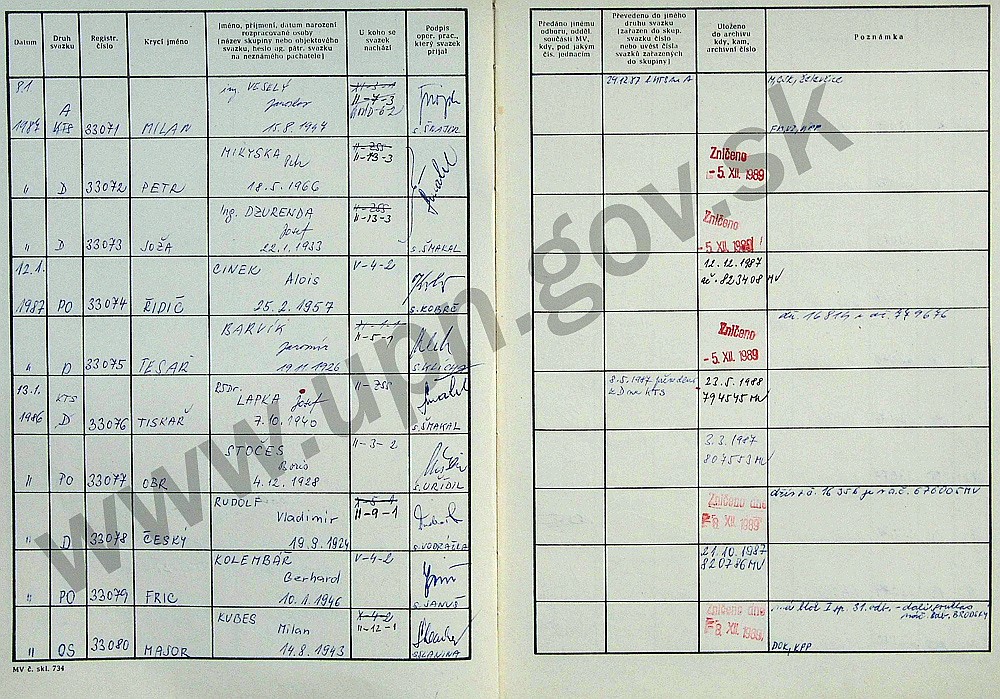 Datum
Druh svazku
Registr. číslo
Krycí jméno
Jméno, příjmení, datum narození
rozpracované osoby
(název skupiny nebo objektového
svazku, heslo ag. pátr. svazku
na neznámého pachatele)
U koho se
svazek
nachází
Podpis
oper. prac.,
který svazek
přijal
Předáno jinému
odboru, odděl.
součásti MV,
kdy, pod jakým
čís. jednacím
Převedeno do jiného
druhu svazku
(zařazen do skup.
svazku číslo
nebo uvést čísla
svazků zařazených
do skupiny)
Uloženo
do archivu
kdy, kam,
archivní číslo
Poznámka
ing. VESELÝ
Jaroslav
A
1987 KTS 33071 MILAN 15.8.1947 II-7-3
29.12.87
MIKYSKA
Petr
II-ZSS
II-13-3
" D 33072 PETR 18.5.1966
Zničeno
-5. XII. 1989
Ing. DZURENDA
Josef
II-ZSS
II-13-3
" D 33073 JOŽA 22.1.1933 S.ŠMAKAL
Zničeno
-5. XII.
12.1. CINEK Alois V-4-2
1987 PO 33074 ŘIDIČ 25.2.1957 S.KOBRČ
12.12.1987
ač. 823408 MV
BARVÍK
Jaromír
II-5-1
" D 33075 TESAŘ 19.11.1926
Zničeno
-5. XII. 1989
13.1. KTS RSDr. LAPKA Josef II-ZSS
1986 D 33076 TISKAŘ 7.10.1940 S.ŠMAKAL
8.5.1987
z D na KTS
23.5.1988
794545 MV
STOČES
Boris
II-3-2
" PO 33077 OBR 4.12.1928 S.UŘIDIL
3.3.1987
807553 MV
RUDOLF
Vladimír
II-5-1
II-9-1
" D 33078 ČESKY 19.9.1924 S.VODRÁŽKA
Zničeno dne
-8. XII. 1989
KOLEMBÁŘ
Gerhard
V-4-2
" PO 33079 FRIC 10.1.1946 S.JANUŠ
21.10.1987
820786 MV
KUBES
Milan
II-4-2
II-12-1
" OS 33080 MAJOR 14.8.1943 S.SLANINA
Zničeno dne
-8. XII. 1989
DOK, KPP
MV č. skl. 734
www.upn.gov.sk